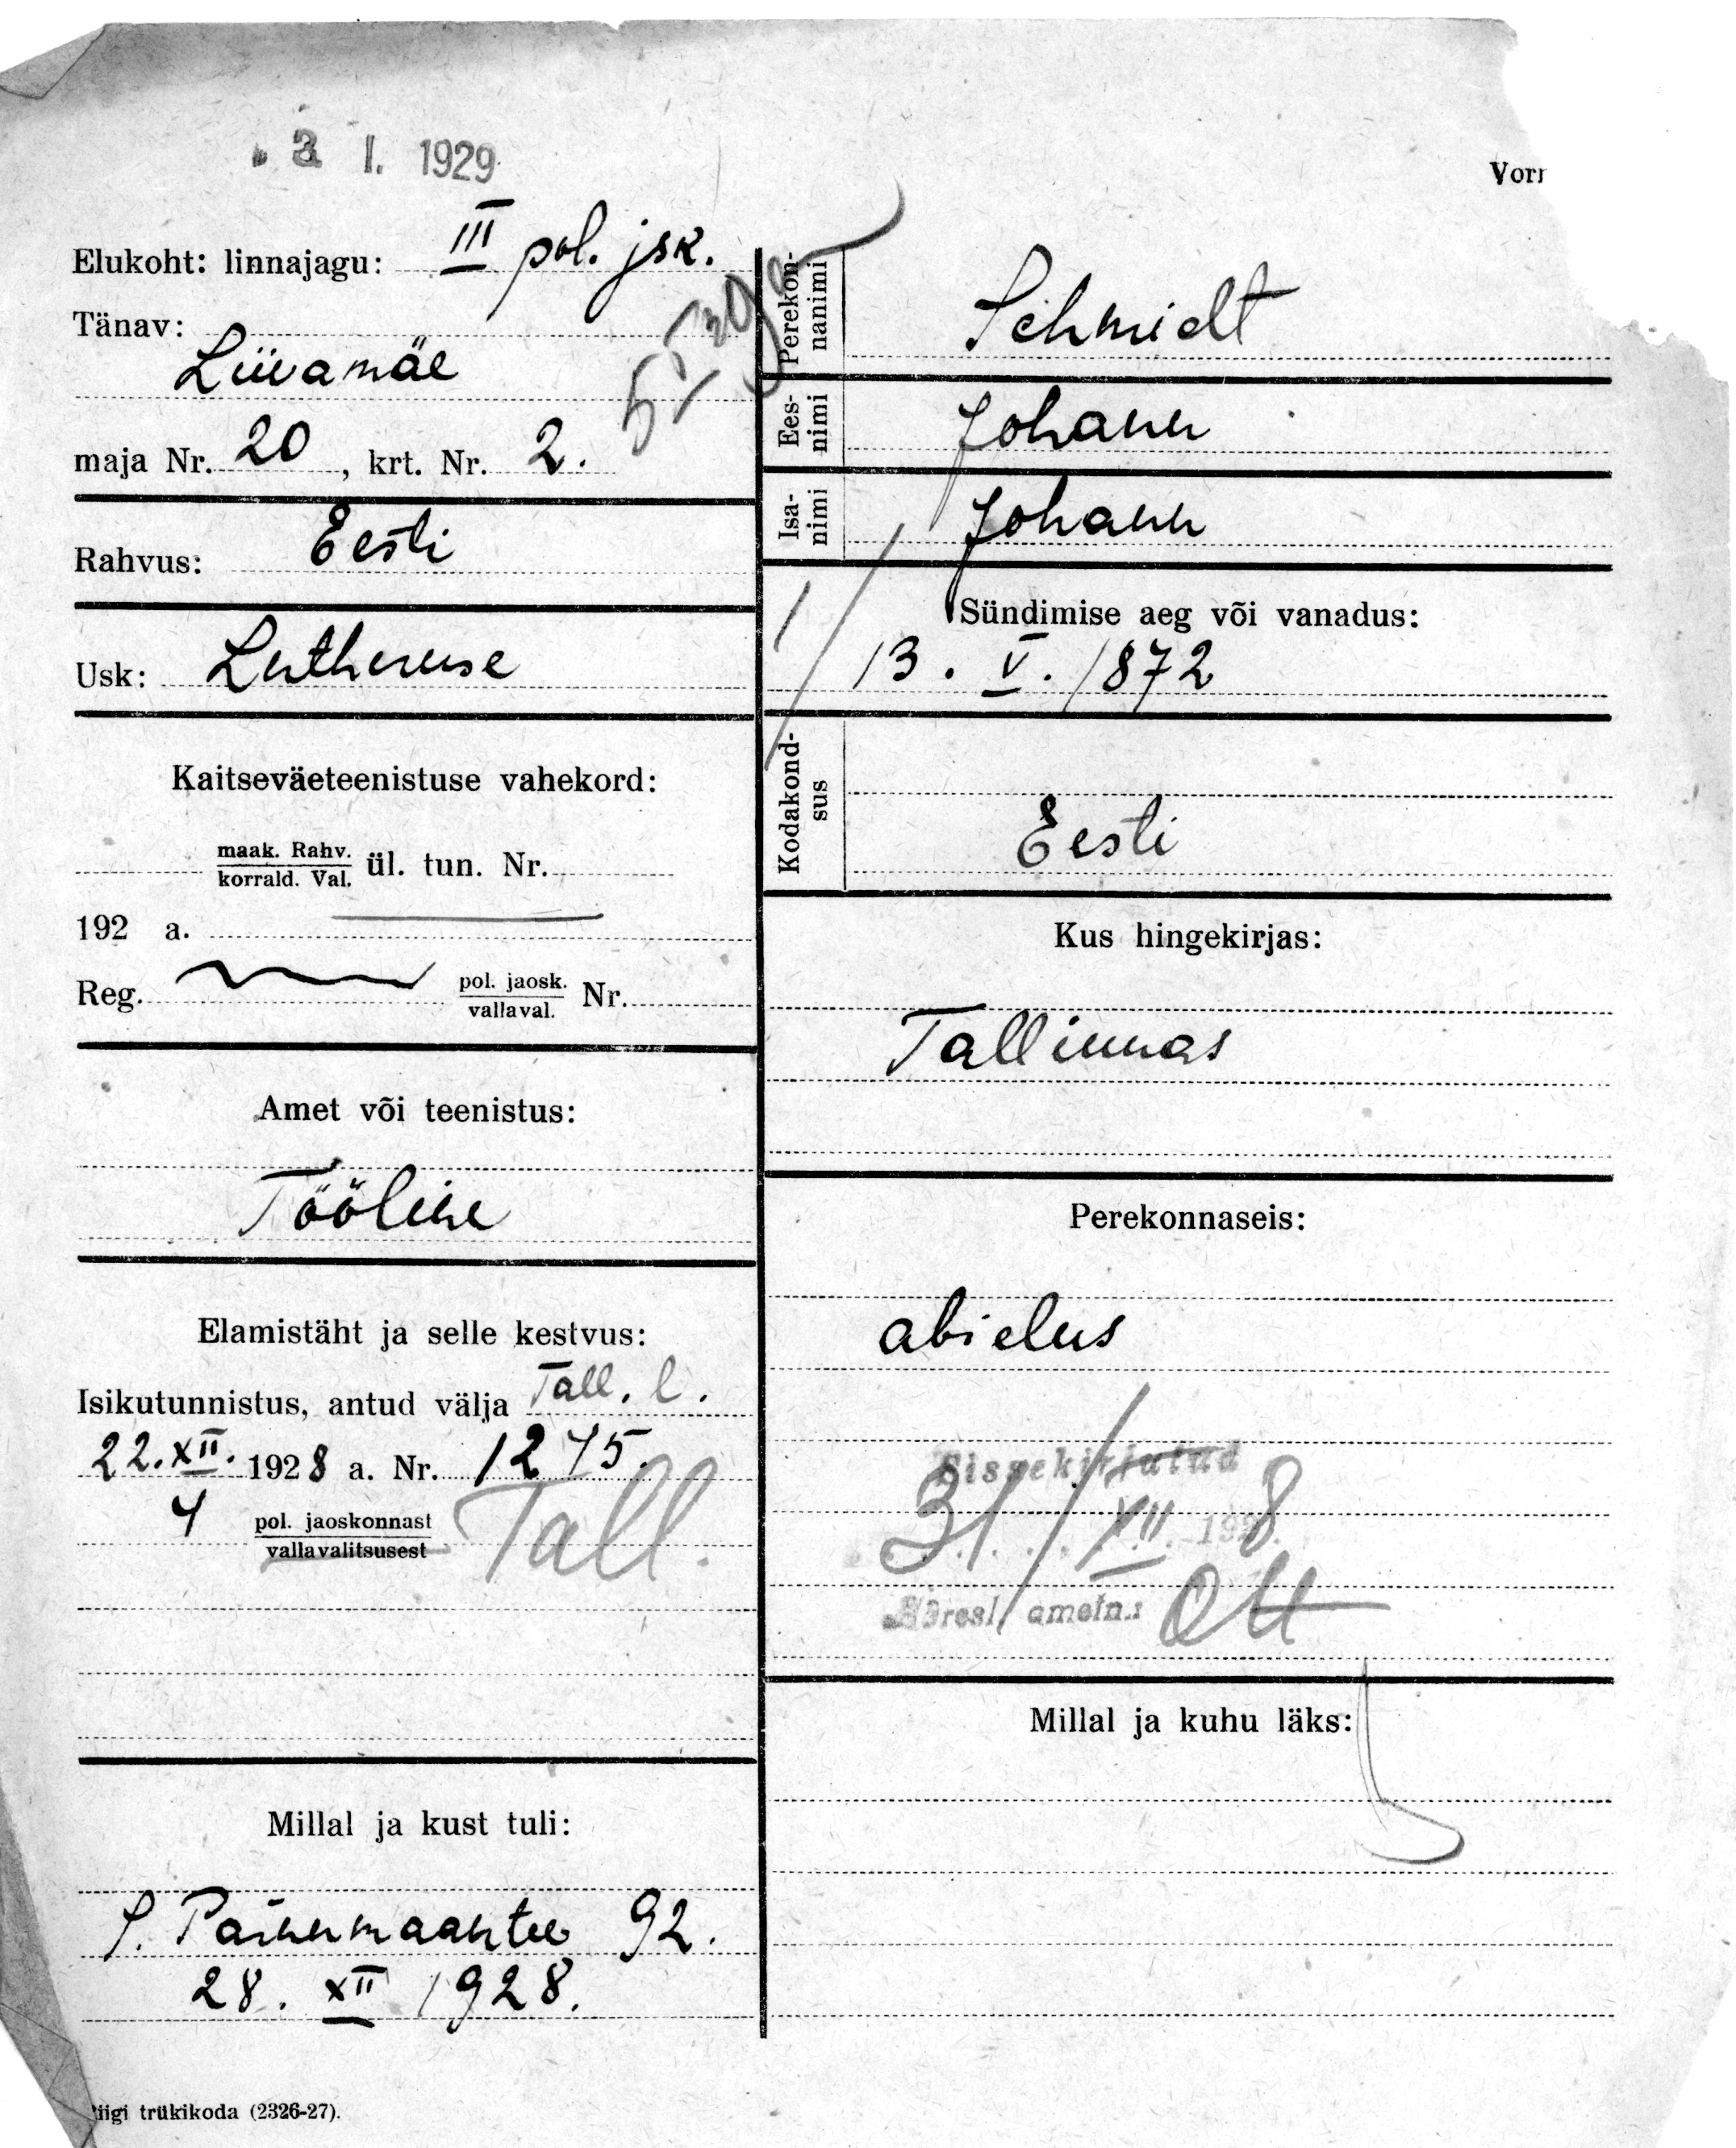 3 I. 1929
Vor
Elukoht: linnajagu: III pol. jsk.
Tänav:
Liivamäe
maja Nr. 20, krt. Nr. 2.
5 I 29
Rahvus: Eesti
Usk: Lutheruse
Kaitseväeteenistuse vahekord:
maak. Rahv.
korrald. Val. ül. tun. Nr.
192 a.
Reg. pol. jaosk.
vallaval. Nr.
Amet või teenistus:
Tööline
Elamistäht ja selle kestvus:
Isikutunnistus, antud välja Tall. l.
22. XII. 1928 a. Nr. 1275.
4 pol. jaoskonnast
vallavalitsusest Tall.
Millal ja kust tuli:
S. Pärnumaantee 92.
28. XII 1928.
Riigi trükikoda (2326-27).
Perekon-
nanimi
Schmidt
Ees-
nimi
Johann
Isa-
nimi
Johann
Sündimise aeg või vanadus:
13. V. 1872
Kodakond-
sus
Eesti
Kus hingekirjas:
Tallinnas
Perekonnaseis:
abielus
Sissekirjutud
31/XII 1928
Adresl. ametn.: Ott
Millal ja kuhu läks: